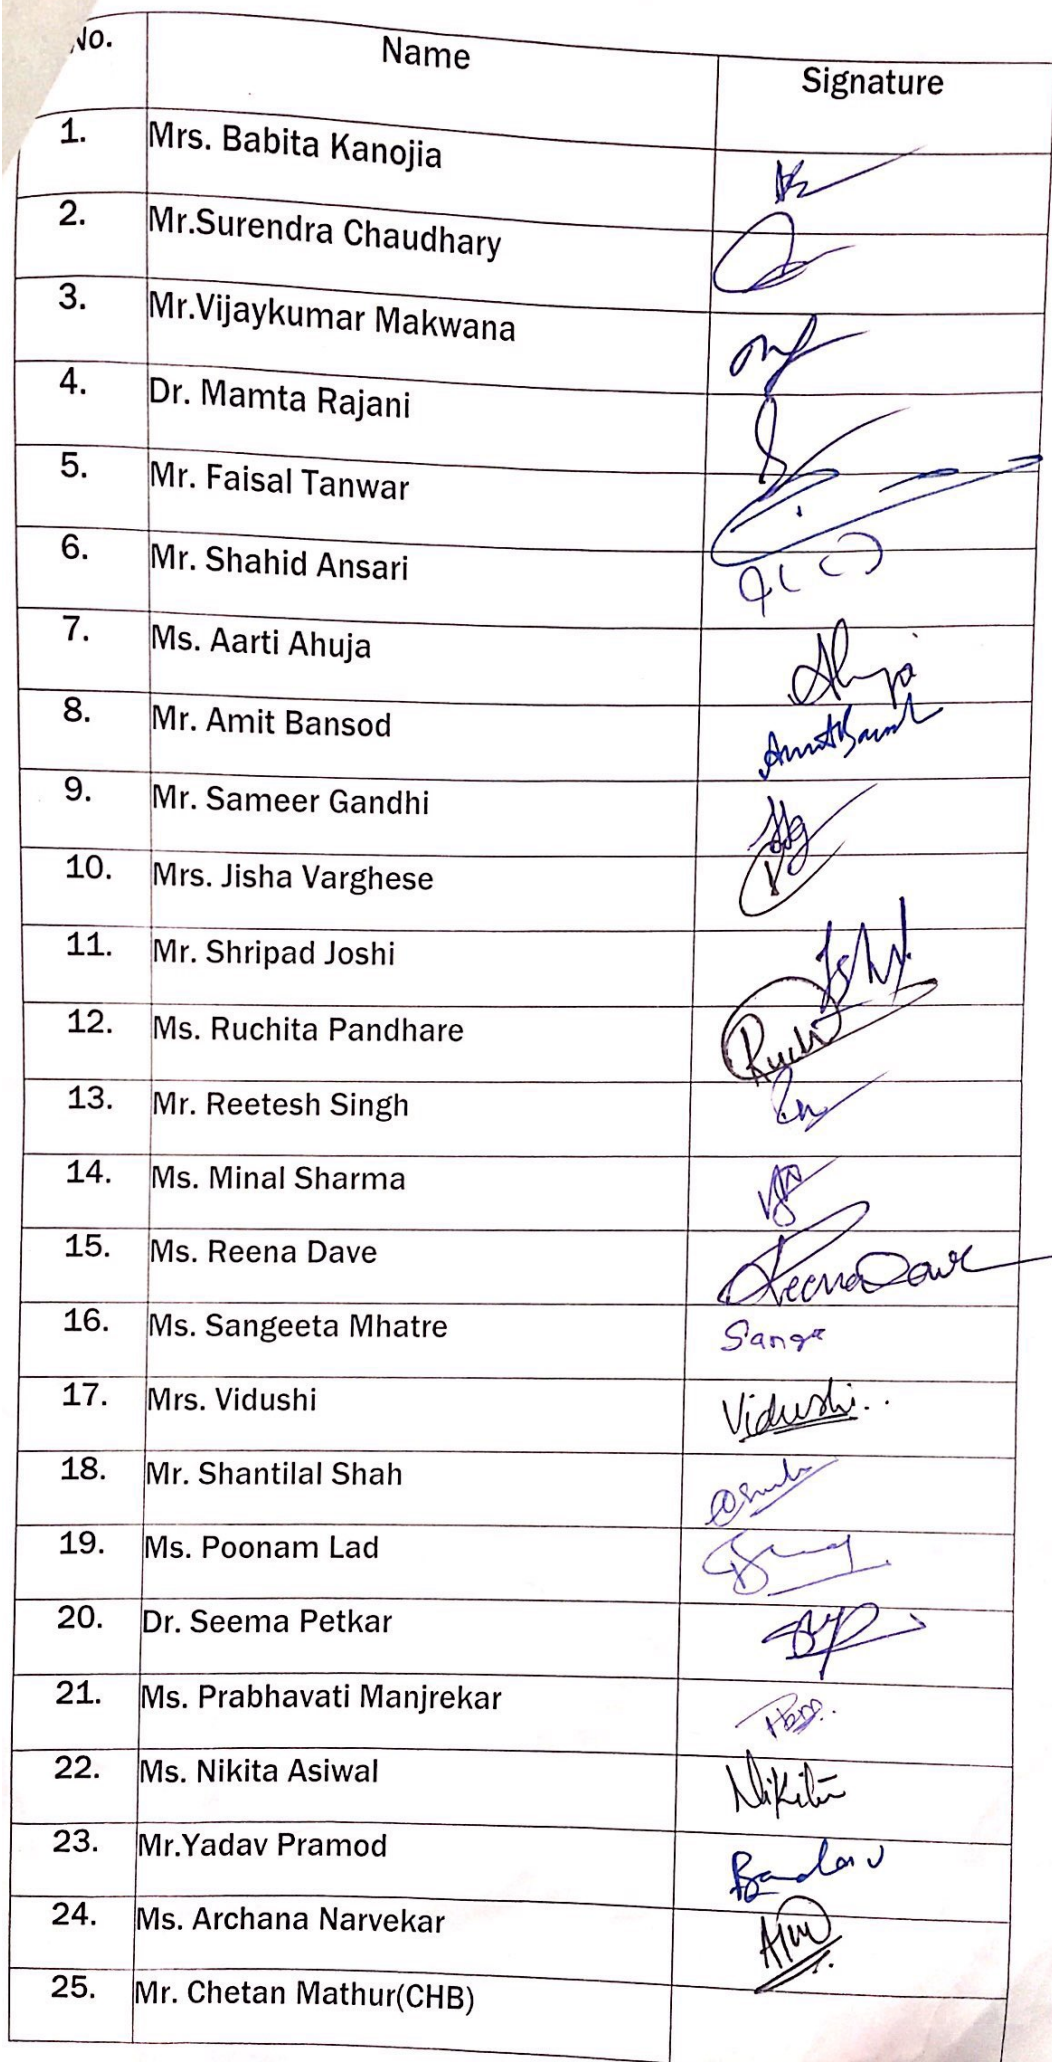 No. Name Signature
1. Mrs. Babita Kanojia
2. Mr.Surendra Chaudhary
3. Mr.Vijaykumar Makwana
4. Dr. Mamta Rajani
5. Mr. Faisal Tanwar
6. Mr. Shahid Ansari
7. Ms. Aarti Ahuja
8. Mr. Amit Bansod
9. Mr. Sameer Gandhi
10. Mrs. Jisha Varghese
11. Mr. Shripad Joshi
12. Ms. Ruchita Pandhare
13. Mr. Reetesh Singh
14. Ms. Minal Sharma
15. Ms. Reena Dave ReenaDave
16. Ms. Sangeeta Mhatre
17. Mrs. Vidushi Vidushi..
18. Mr. Shantilal Shah
19. Ms. Poonam Lad
20. Dr. Seema Petkar
21. Ms. Prabhavati Manjrekar
22. Ms. Nikita Asiwal Nikita
23. Mr.Yadav Pramod
24. Ms. Archana Narvekar
25. Mr. Chetan Mathur(CHB)